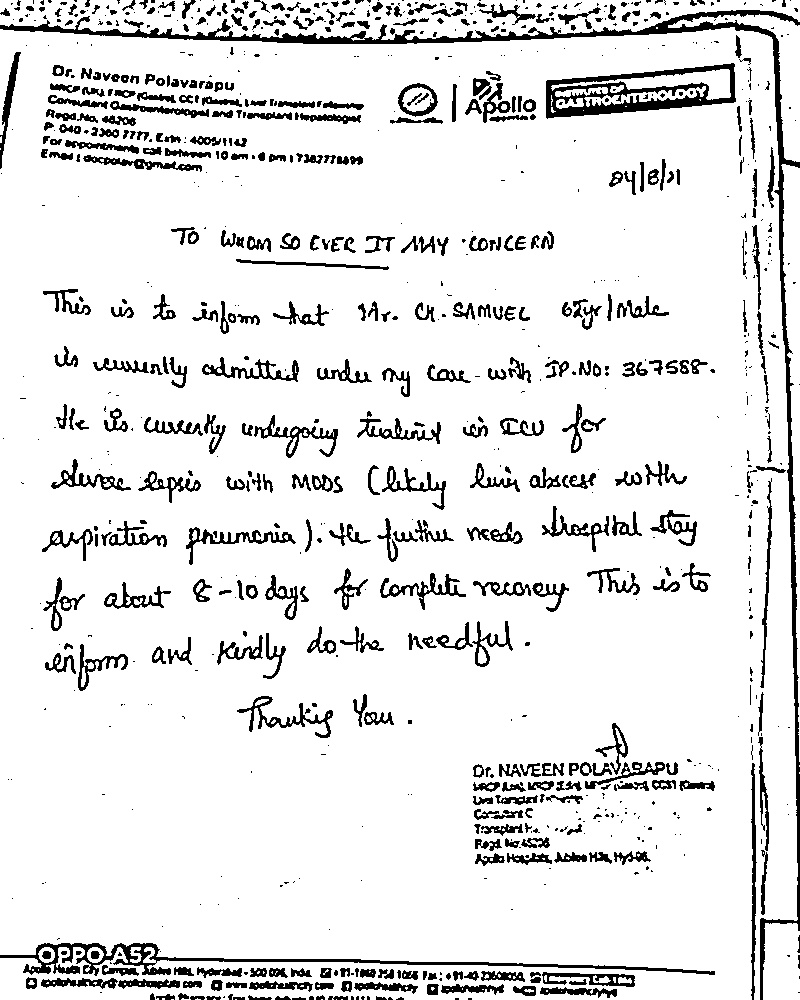 Dr. Naveen Polavarapu
MRCP (UK), FRCP (Gastro), CCT (Gastro), Liver Transplant Fellowship
Consultant Gastroenterologist and Transplant Hepatologist
Regd.No. 48206
P: 040 - 2360 7777, Extn : 4005/1142
For appointments call between 10 am - 6 pm : 7382778899
Email : docpolav@gmail.com
Apollo
INSTITUTES OF
GASTROENTEROLOGY
24/8/21
TO WHOM SO EVER IT MAY CONCERN
This is to inform that Mr. CH. SAMUEL 62yr/Male
is currently admitted under my care with IP.NO: 367588.
He is currently undergoing treatment in ICU for
severe sepsis with MODS (likely liver abscess with
aspiration pneumonia). He further needs hospital stay
for about 8-10 days for complete recovery. This is to
inform and kindly do the needful.
Thanking You.
Dr. NAVEEN POLAVARAPU
Liver Transplant
Transplant
Regd. No:48206
Apollo Hospitals, Jubilee Hills, Hyd-96.
OPPO A52
Apollo Health City Campus, Jubilee Hills, Hyderabad - 500 096, India.
apollohealthcity@apollohospitals.com www.apollohealthcity.com apollohealthcity